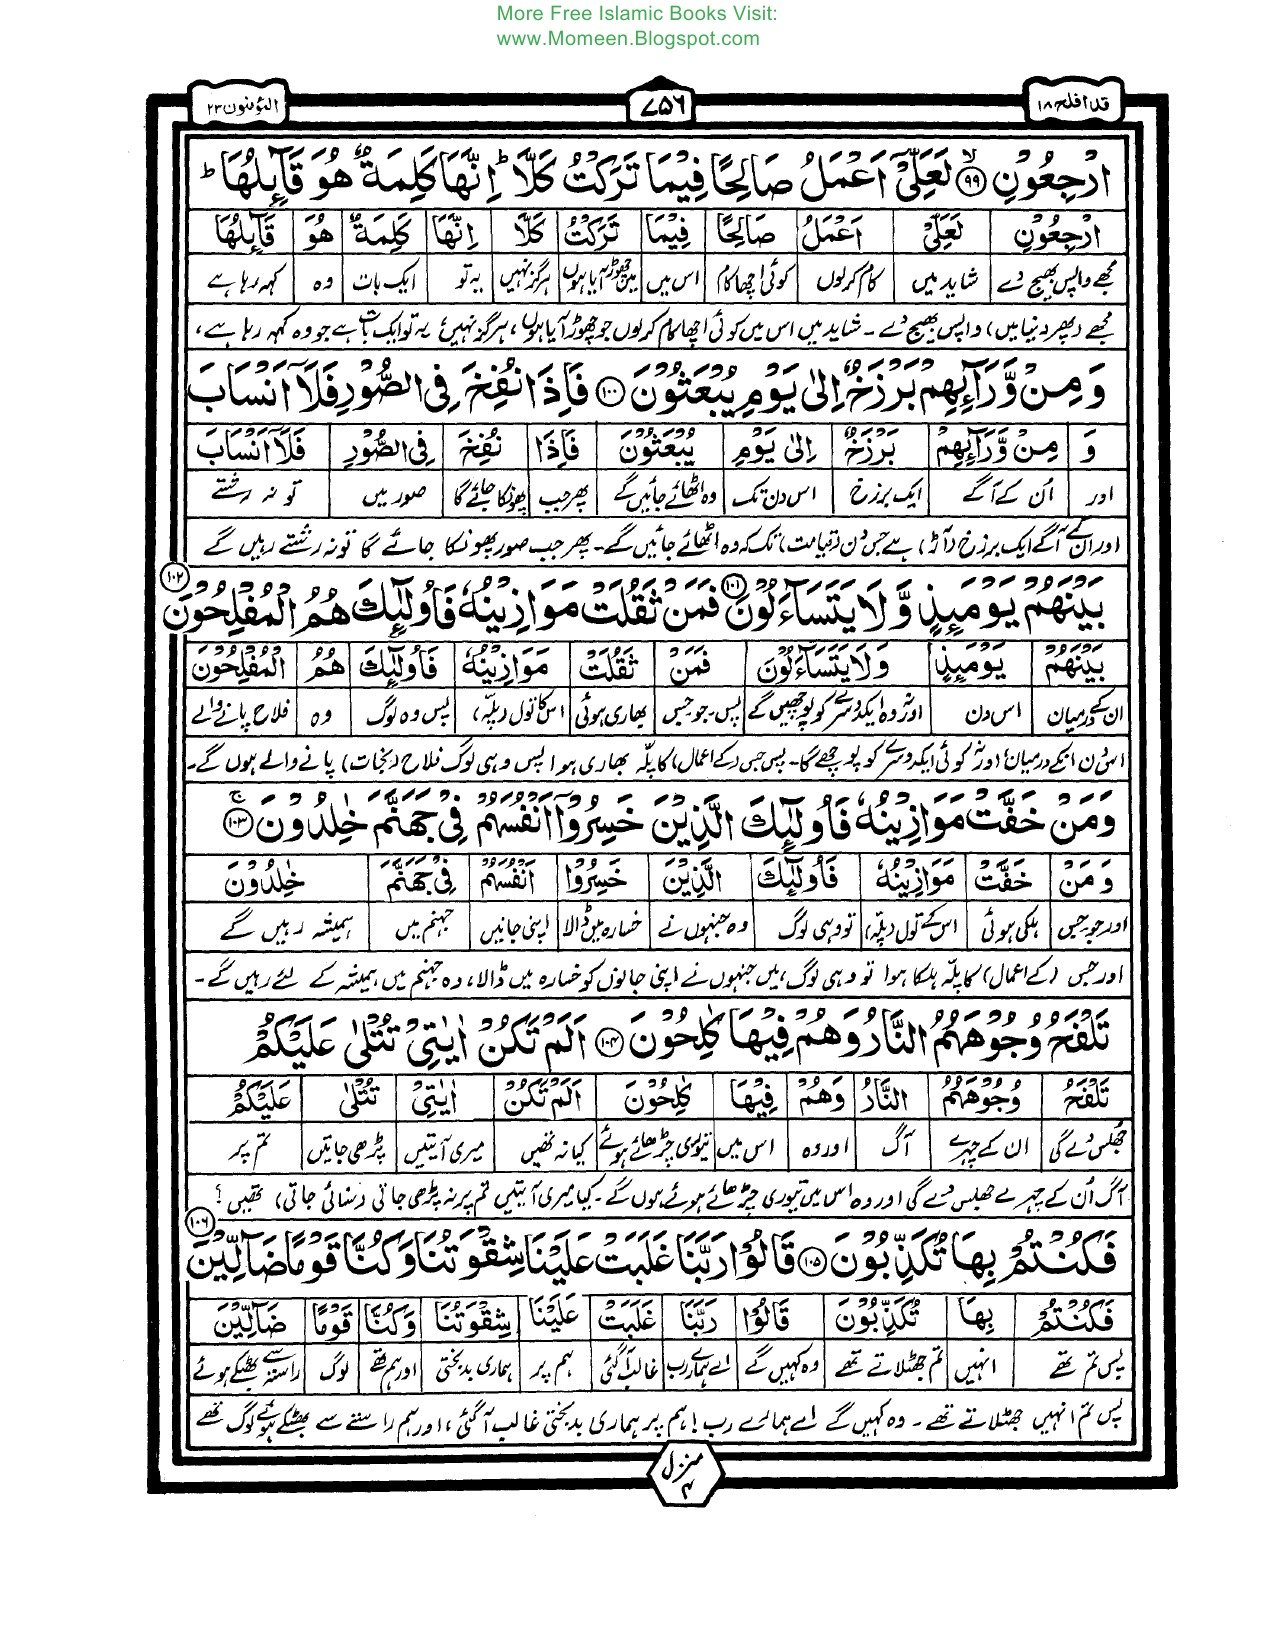 More Free Islamic Books Visit:
www.Momeen.Blogspot.com
قد افلح ۱۸
۷۵۶
المؤمنون ۲۳
ارْجِعُوْنِ ۙ‏﴿۹۹﴾ لَعَلِّیْۤ اَعْمَلُ صَالِحًا فِیْمَا تَرَكْتُ كَلَّا ؕ اِنَّهَا كَلِمَةٌ هُوَ قَآىِٕلُهَا ؕ
ارْجِعُوْنِ لَعَلِّیْۤ اَعْمَلُ صَالِحًا فِیْمَا تَرَكْتُ كَلَّا اِنَّهَا كَلِمَةٌ هُوَ قَآىِٕلُهَا
مجھے واپس بھیج دے شاید میں کام کرلوں کوئی اچھا کام اس میں میں چھوڑ آیا ہوں ہرگز نہیں یہ تو ایک بات وہ کہہ رہا ہے
مجھے (پھر دنیا میں) واپس بھیج دے۔ شاید میں اس میں کوئی اچھا کام کرلوں جو چھوڑ آیا ہوں، ہرگز نہیں، یہ تو ایک بات ہے جو وہ کہہ رہا ہے،
وَ مِنْ وَّرَآىِٕهِمْ بَرْزَخٌ اِلٰی یَوْمِ یُبْعَثُوْنَ ﴿۱۰۰﴾ فَاِذَا نُفِخَ فِی الصُّوْرِ فَلَاۤ اَنْسَابَ
وَ مِنْ وَّرَآىِٕهِمْ بَرْزَخٌ اِلٰی یَوْمِ یُبْعَثُوْنَ فَاِذَا نُفِخَ فِی الصُّوْرِ فَلَاۤ اَنْسَابَ
اور ان کے آگے ایک برزخ اس دن تک وہ اٹھائے جائیں گے پھر جب پھونکا جائے گا صور میں تو نہ رشتے
اور ان کے آگے ایک برزخ (آڑ) ہے جس دن (قیامت) تک کہ وہ اٹھائے جائیں گے۔ پھر جب صور پھونکا جائے گا تو نہ رشتے رہیں گے
بَیْنَهُمْ یَوْمَىِٕذٍ وَّ لَا یَتَسَآءَلُوْنَ ﴿۱۰۱﴾ فَمَنْ ثَقُلَتْ مَوَازِیْنُهٗ فَاُولٰٓىِٕكَ هُمُ الْمُفْلِحُوْنَ ﴿۱۰۲﴾
بَیْنَهُمْ یَوْمَىِٕذٍ وَّلَا یَتَسَآءَلُوْنَ فَمَنْ ثَقُلَتْ مَوَازِیْنُهٗ فَاُولٰٓىِٕكَ هُمُ الْمُفْلِحُوْنَ
ان کے درمیان اس دن اور نہ وہ ایک دوسرے کو پوچھیں گے پس۔ جو جس بھاری ہوئی اس کا تول (پلہ) پس وہ لوگ وہ فلاح پانے والے
اس دن انکے درمیان، اور نہ کوئی ایک دوسرے کو پوچھے گا۔ پس جس (کے اعمال) کا پلّہ بھاری ہوا پس وہی لوگ فلاح (نجات) پانے والے ہوں گے۔
وَ مَنْ خَفَّتْ مَوَازِیْنُهٗ فَاُولٰٓىِٕكَ الَّذِیْنَ خَسِرُوْۤا اَنْفُسَهُمْ فِیْ جَهَنَّمَ خٰلِدُوْنَ ۚ‏﴿۱۰۳﴾
وَ مَنْ خَفَّتْ مَوَازِیْنُهٗ فَاُولٰٓىِٕكَ الَّذِیْنَ خَسِرُوْۤا اَنْفُسَهُمْ فِیْ جَهَنَّمَ خٰلِدُوْنَ
اور جو۔ جس ہلکی ہوئی اس کے تول (پلہ) تو وہی لوگ وہ جنہوں نے خسارہ میں ڈالا اپنی جانیں جہنم میں ہمیشہ رہیں گے
اور جس (کے اعمال) کا پلّہ ہلکا ہوا تو وہی لوگ ہیں جنہوں نے اپنی جانوں کو خسارہ میں ڈالا، وہ جہنم میں ہمیشہ کے لئے رہیں گے۔
تَلْفَحُ وُجُوْهَهُمُ النَّارُ وَ هُمْ فِیْهَا كٰلِحُوْنَ ﴿۱۰۴﴾ اَلَمْ تَكُنْ اٰیٰتِیْ تُتْلٰی عَلَیْكُمْ
تَلْفَحُ وُجُوْهَهُمُ النَّارُ وَهُمْ فِیْهَا كٰلِحُوْنَ اَلَمْ تَكُنْ اٰیٰتِیْ تُتْلٰی عَلَیْكُمْ
جھلس دے گی ان کے چہرے آگ اور وہ اس میں تیوری چڑھائے ہوئے کیا نہ تھیں میری آیتیں پڑھی جاتیں تم پر
آگ ان کے چہرے جھلس دے گی اور وہ اس میں تیوری چڑھائے ہوئے ہوں گے۔ کیا میری آیتیں تم پر نہ پڑھی جاتی (سنائی جاتی) تھیں؟
فَكُنْتُمْ بِهَا تُكَذِّبُوْنَ ﴿۱۰۵﴾ قَالُوْا رَبَّنَا غَلَبَتْ عَلَیْنَا شِقْوَتُنَا وَ كُنَّا قَوْمًا ضَآلِّیْنَ ﴿۱۰۶﴾
فَكُنْتُمْ بِهَا تُكَذِّبُوْنَ قَالُوْا رَبَّنَا غَلَبَتْ عَلَیْنَا شِقْوَتُنَا وَكُنَّا قَوْمًا ضَآلِّیْنَ
پس تم تھے انہیں تم جھٹلاتے تھے وہ کہیں گے اے ہمارے رب غالب آگئی ہم پر ہماری بدبختی اور ہم تھے لوگ راستہ سے بھٹکے ہوئے
پس تم انہیں جھٹلاتے تھے۔ وہ کہیں گے اے ہمارے رب! ہم پر ہماری بدبختی غالب آگئی، اور ہم راستے سے بھٹکے ہوئے لوگ تھے
منزل ۴